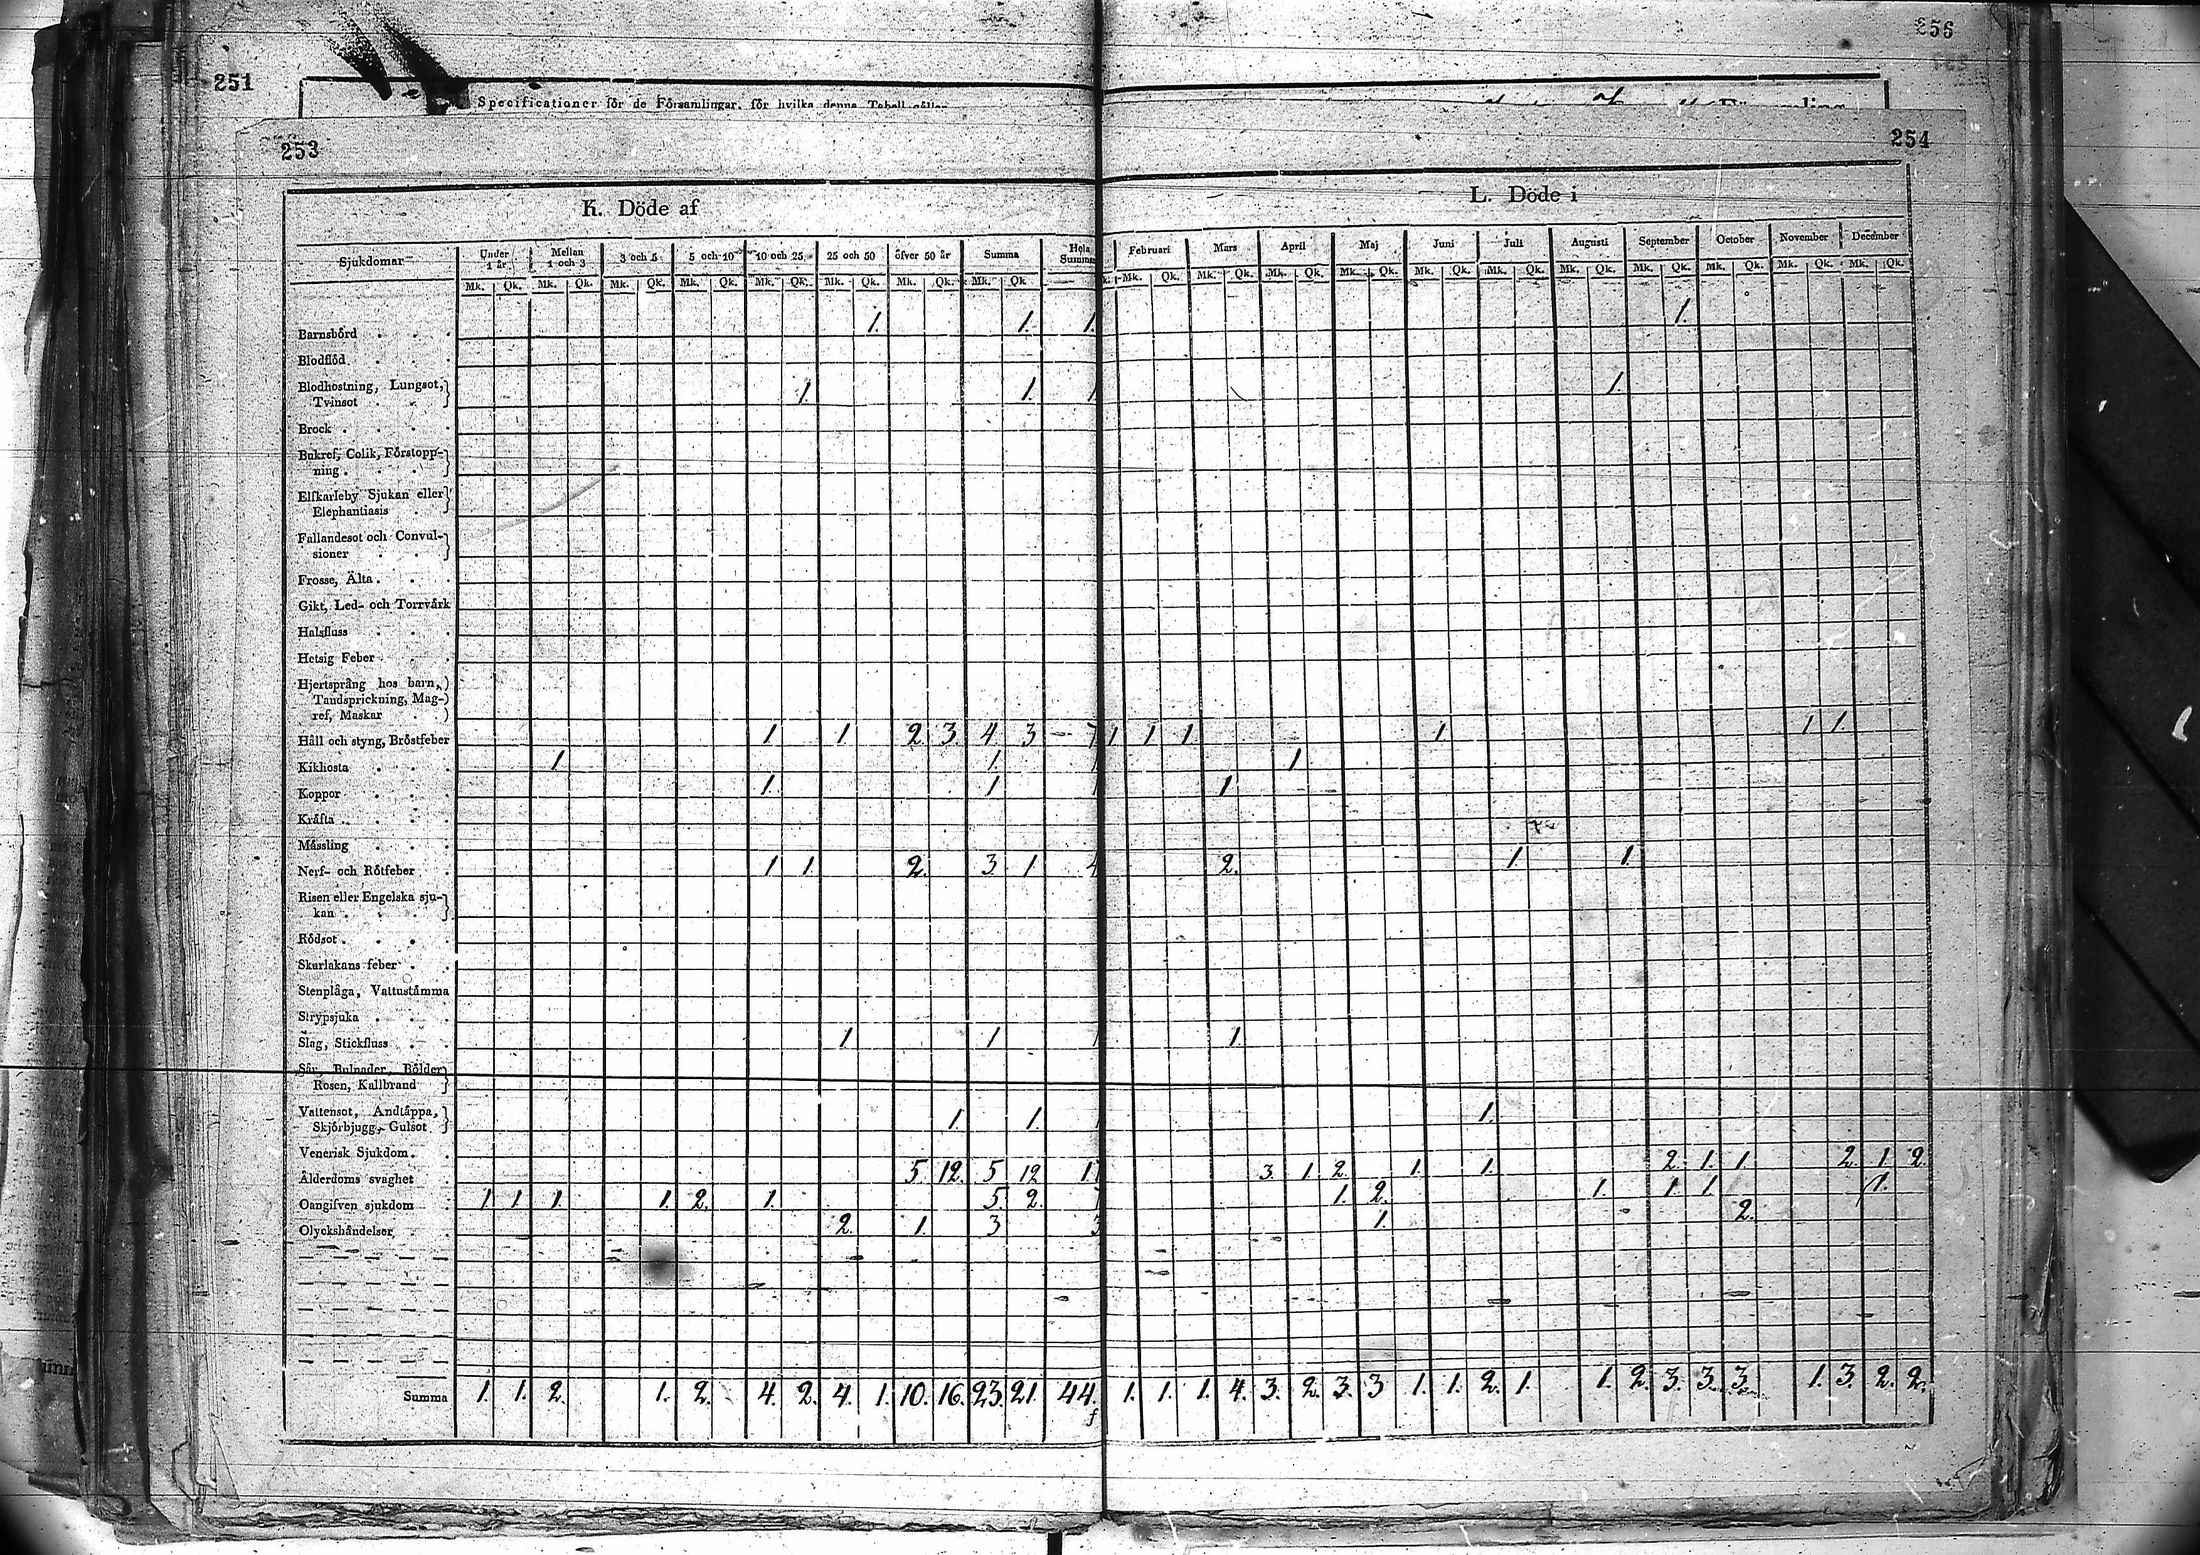 251
256
Specificationer för de Församlingar, för hvilka denna Tabell gäller
253
254
K. Döde af
L. Döde i
Sjukdomar
Under 1 år
Mellan 1 och 3
3 och 5
5 och 10
10 och 25
25 och 50
öfver 50 år
Summa
Hela Summa
Februari
Mars
April
Maj
Juni
Juli
Augusti
September
October
November
December
Mk. Qk. Mk. Qk. Mk. Qk. Mk. Qk. Mk. Qk. Mk. Qk. Mk. Qk. Mk. Qk
Mk. Qk. Mk. Qk. Mk. Qk. Mk. Qk. Mk. Qk. Mk. Qk. Mk. Qk. Mk. Qk. Mk. Qk. Mk. Qk. Mk. Qk.
Barnsbörd 1. 1. 1. 1.
Blodflöd
Blodhostning, Lungsot,
Tvinsot 1. 1. 1 1.
Brock
Bukref, Colik, Förstopp-
ning
Elfkarleby Sjukan eller
Elephantiasis
Fallandesot och Convul-
sioner
Frosse, Älta
Gikt, Led- och Torrvärk
Halsfluss
Hetsig Feber
Hjertsprång hos barn,
Tandsprickning, Mag-
ref, Maskar
Håll och styng, Bröstfeber 1. 1. 2. 3. 4. 3. 7 1 1 1. 1. 1. 1.
Kikhosta 1. 1. 1 1.
Koppor 1. 1. 1 1.
Kräfta
Mässling
Nerf- och Rötfeber 1 1. 2. 3. 1. 4 2. 1. 1.
Risen eller Engelska sju-
kan
Rödsot
Skarlakans feber
Stenplåga, Vattustämma
Strypsjuka
Slag, Stickfluss 1. 1. 1 1.
Sår, Bulnader, Bölder
Rosen, Kallbrand
Vattensot, Andtäppa,
Skjörbjugg, Gulsot 1. 1. 1 1.
Venerisk Sjukdom
Ålderdoms svaghet 5 12. 5 12 17 3. 1. 2. 1. 1. 2. 1. 1. 2. 1. 2.
Oangifven sjukdom 1. 1. 1. 1. 2. 1. 5. 2. 7 1. 2. 1. 1. 1. 1.
Olyckshändelser 2. 1. 3 3 1. 2.
Summa 1. 1. 2. 1. 2. 4. 2. 4. 1. 10. 16. 23. 21. 44. 1. 1. 1. 4. 3. 2. 3. 3 1. 1. 2. 1. 1. 2. 3. 3. 3. 1. 3. 2. 2.